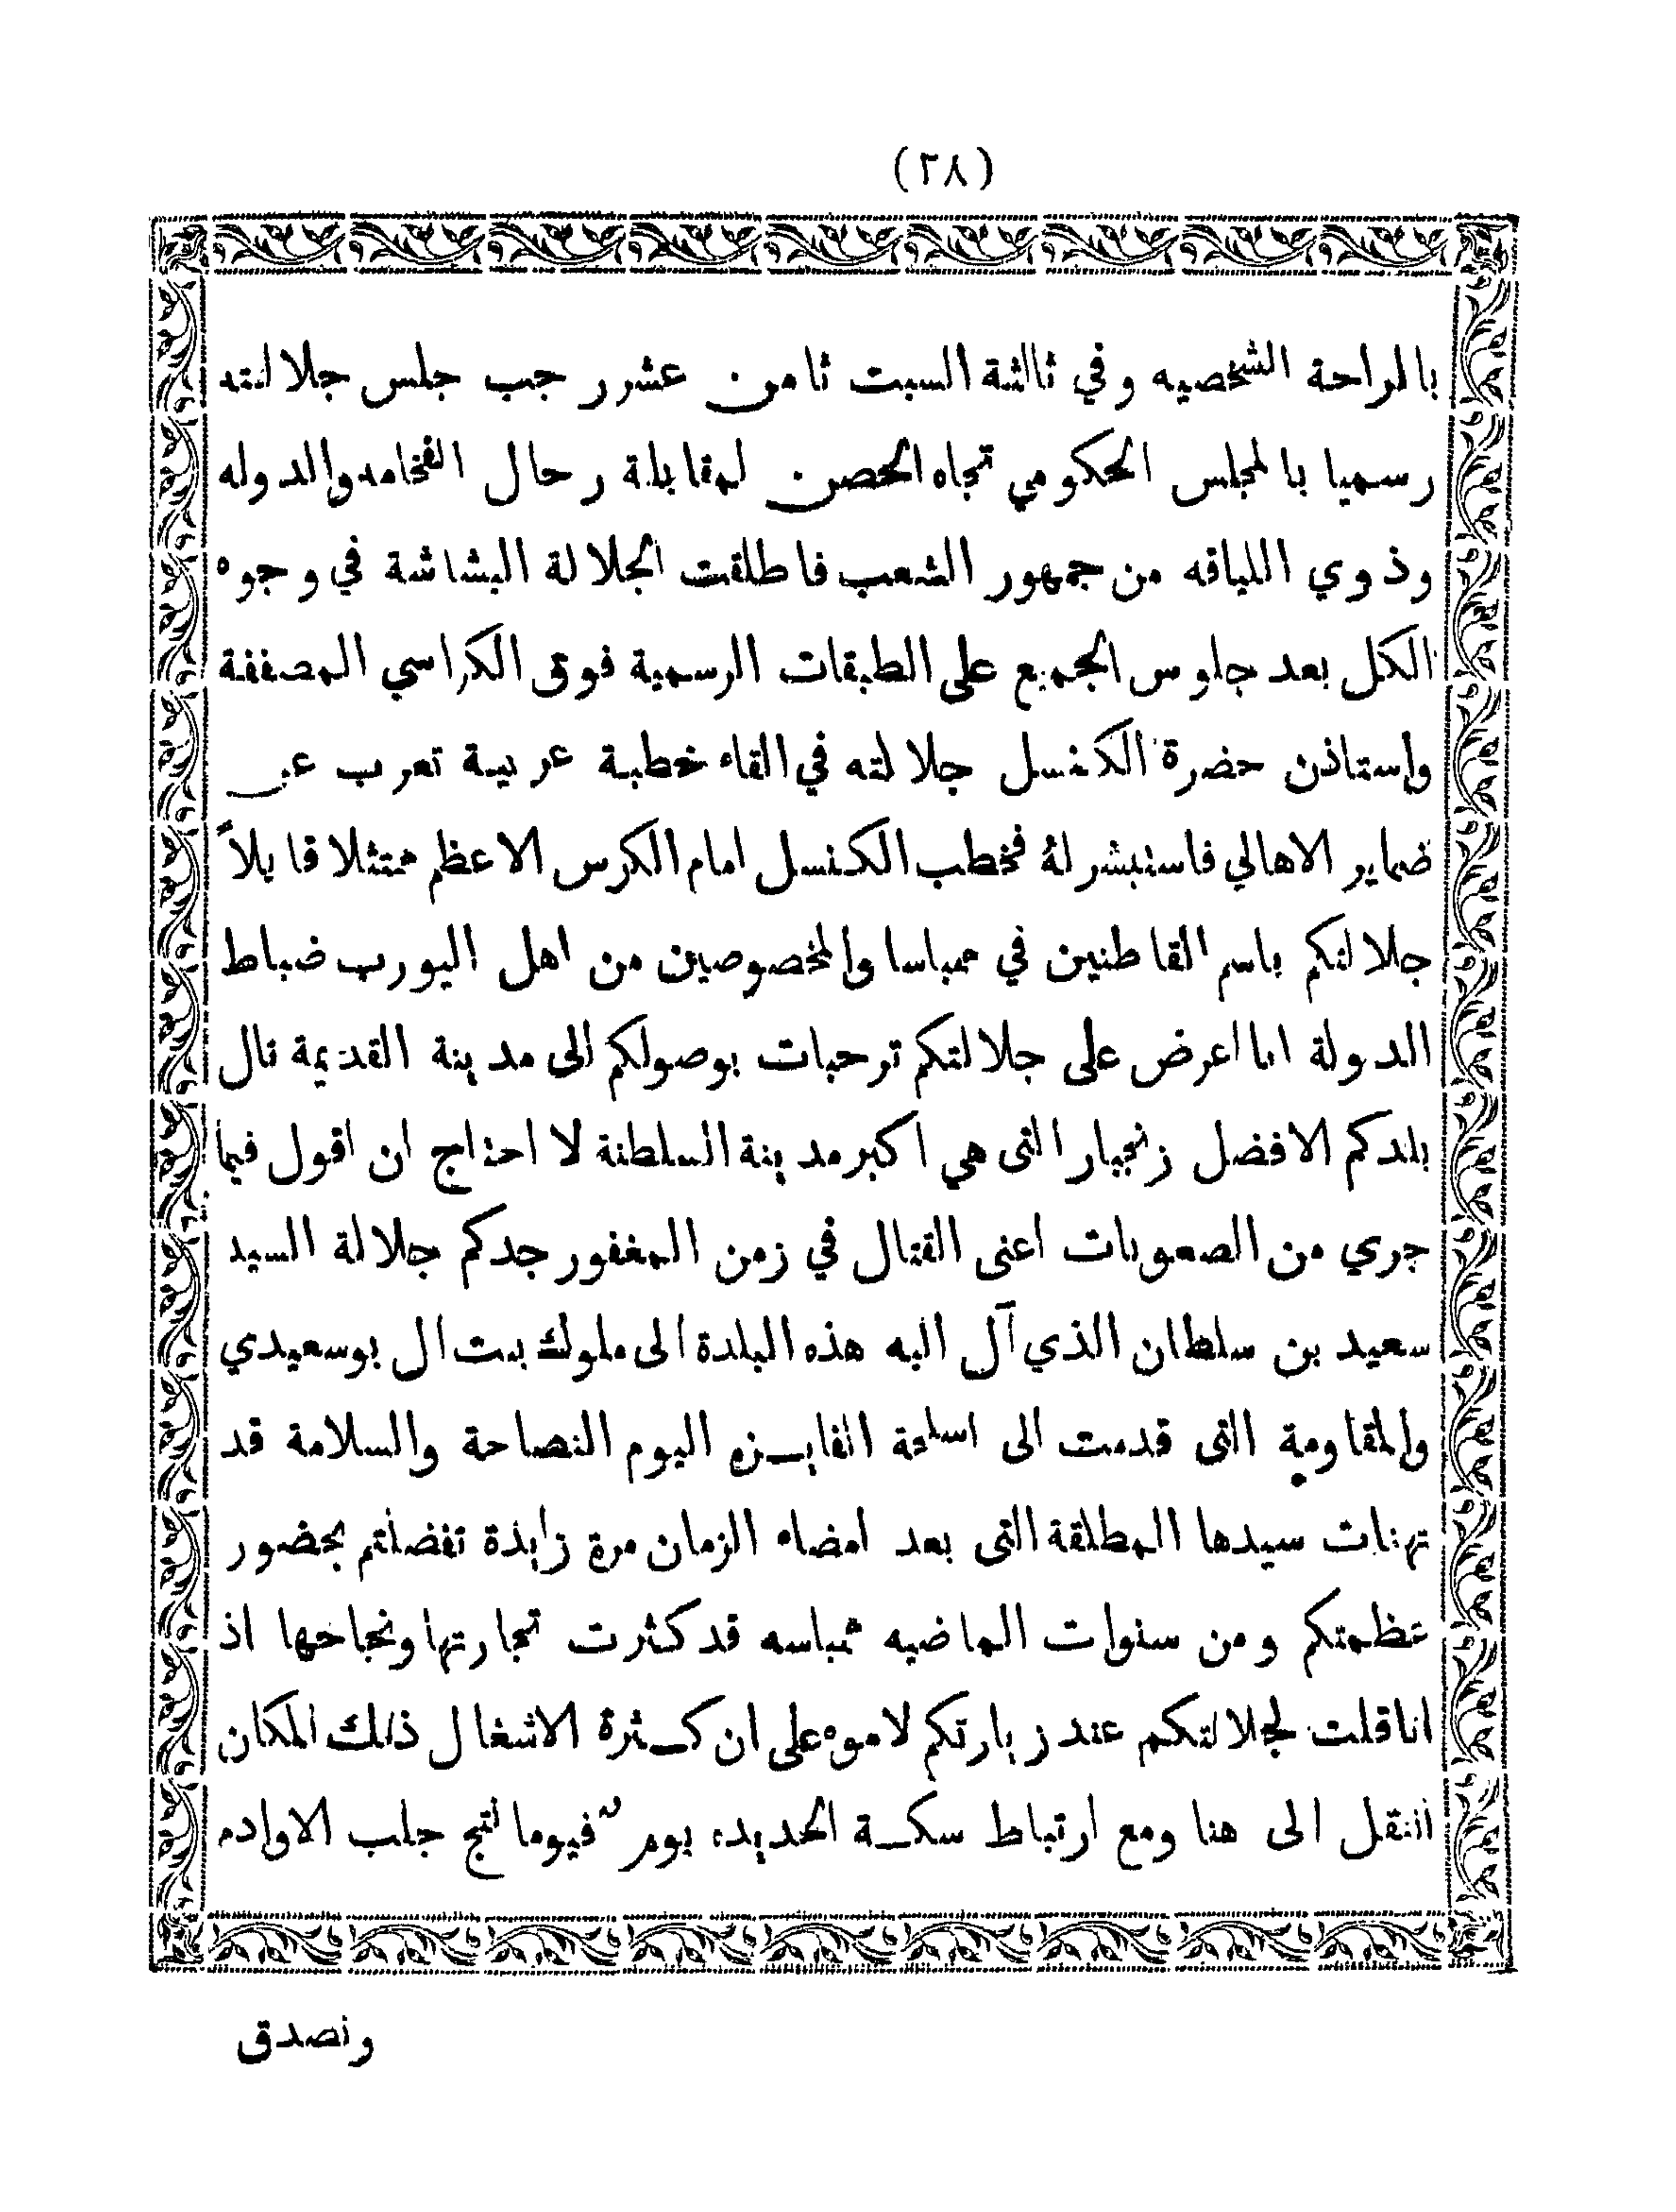 (٢٨)
بالراحة الشخصيه وفي ثالثة السبت ثامن عشر رجب جلس جلالته
رسميا بالمجلس الحكومي تجاه الحصن لمقابلة رحال الفخامه والدوله
وذوي اللياقه من جمهور الشعب فاطلقت الجلالة البشاشة في وجوه
الكل بعد جلوس الجميع على الطبقات الرسمية فوق الكراسي المصففة
واستاذن حضرة الكنسل جلالته في القاء خطبة عربية تعرب عن
ضماير الاهالي فاستبشر لهُ فخطب الكنسل امام الكرس الاعظم ممتثلا قايلاً
جلالتكم باسم القاطنين في ممباسا والمخصوصين من اهل اليورب ضباط
الدولة انا اعرض على جلالتكم ترحبات بوصولكم الى مدينة القديمة تال
بلدكم الافضل زنجبار التى هي اكبر مدينة السلطنة لا احتاج ان اقول فيما
جري من الصعوبات اعنى القتال في زمن المغفور جدكم جلالة السيد
سعيد بن سلطان الذي آل اليه هذه البلدة الى ملوك بيت ال بوسعيدي
والمقاومة التى قدمت الى اسلحة الفايزه اليوم النصاحة والسلامة قد
تهنات سيدها المطلقة التى بعد امضاء الزمان مرة زايدة تفضلتم بحضور
عظمتكم ومن سنوات الماضيه ممباسه قد كثرت تجارتها ونجاحها اذ
انا قلت لجلالتكم عند زيارتكم لاموه على ان كثرة الاشغال ذلك المكان
انتقل الى هنا ومع ارتباط سكة الحديده يوم فيوما لتج جلب الاوادم
ونصدق